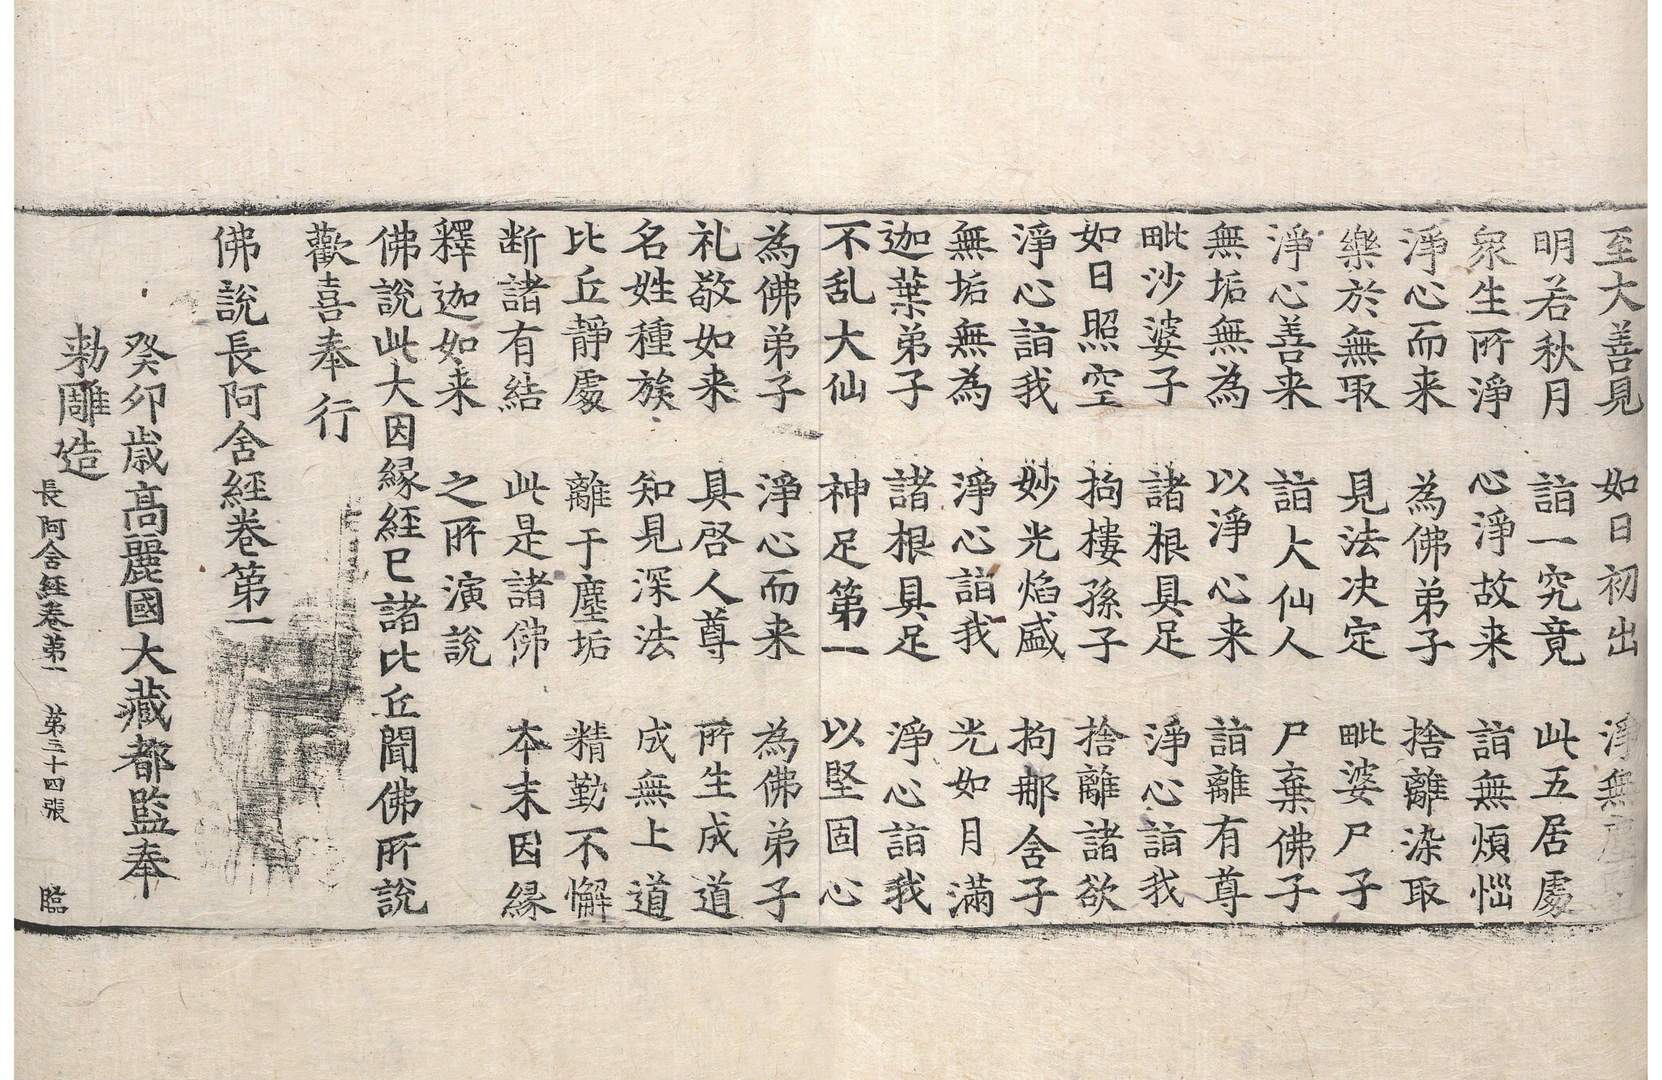 至大善見 如日初出 淨無塵
明若秋月 詣一究竟 此五居處
衆生所淨 心淨故来 詣無煩惱
淨心而来 為佛弟子 捨離染取
樂於無取 見法决定 毗婆尸子
淨心善来 詣大仙人 尸棄佛子
無垢無為 以淨心来 詣離有尊
毗沙婆子 諸根具足 淨心詣我
如日照空 拘樓孫子 捨離諸欲
淨心詣我 妙光焰盛 拘那含子
無垢無為 淨心詣我 光如月滿
迦葉弟子 諸根具足 淨心詣我
不乱大仙 神足第一 以堅固心
為佛弟子 淨心而来 為佛弟子
礼敬如来 具啓人尊 所生成道
名姓種族 知見深法 成無上道
比丘靜處 離于塵垢 精勤不懈
断諸有結 此是諸佛 本末因縁
釋迦如来 之所演說
佛說此大因縁經已諸比丘聞佛所說
歡喜奉行
佛說長阿含經卷第一
癸卯歳高麗國大藏都監奉
勅雕造
長阿含經卷第一 第三十四張 臨